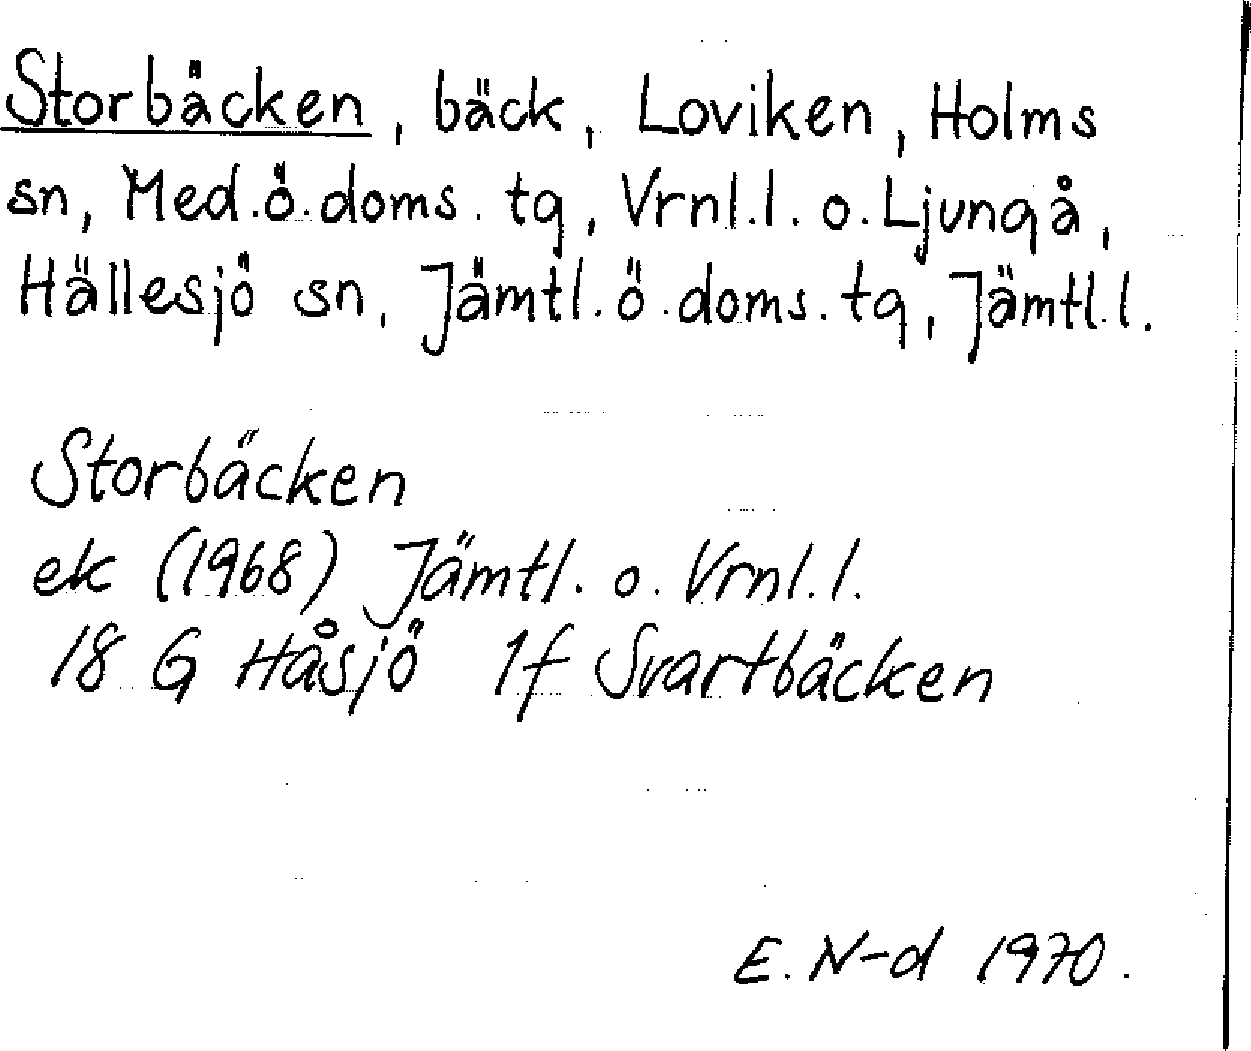 Storbäcken, bäck, Loviken, Holms
sn, Med.ö.doms.tg, Vrnl.l. o. Ljungå,
Hällesjö sn, Jämtl.ö.doms.tg, Jämtl.l.
Storbäcken
ek (1968) Jämtl. o. Vrnl.l.
18 G Håsjö 1f Svartbäcken
E. N-d 1970.